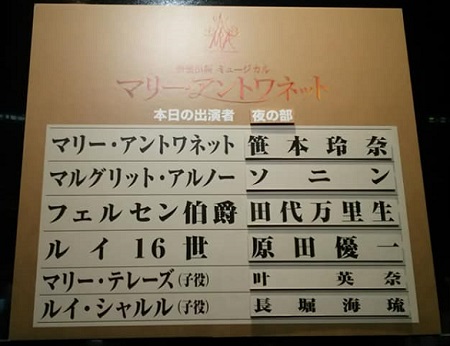 帝国劇場 ミュージカル
マリー・アントワネット
本日の出演者 夜の部
マリー・アントワネット 笹本玲奈
マルグリット・アルノー ソニン
フェルセン伯爵 田代万里生
ルイ16世 原田優一
マリー・テレーズ(子役) 叶英奈
ルイ・シャルル(子役) 長堀海琉